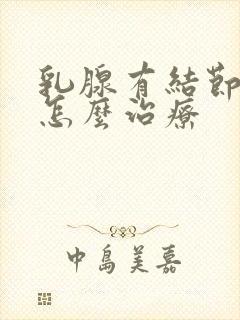 乳腺有結節
怎麼治療
中島美嘉